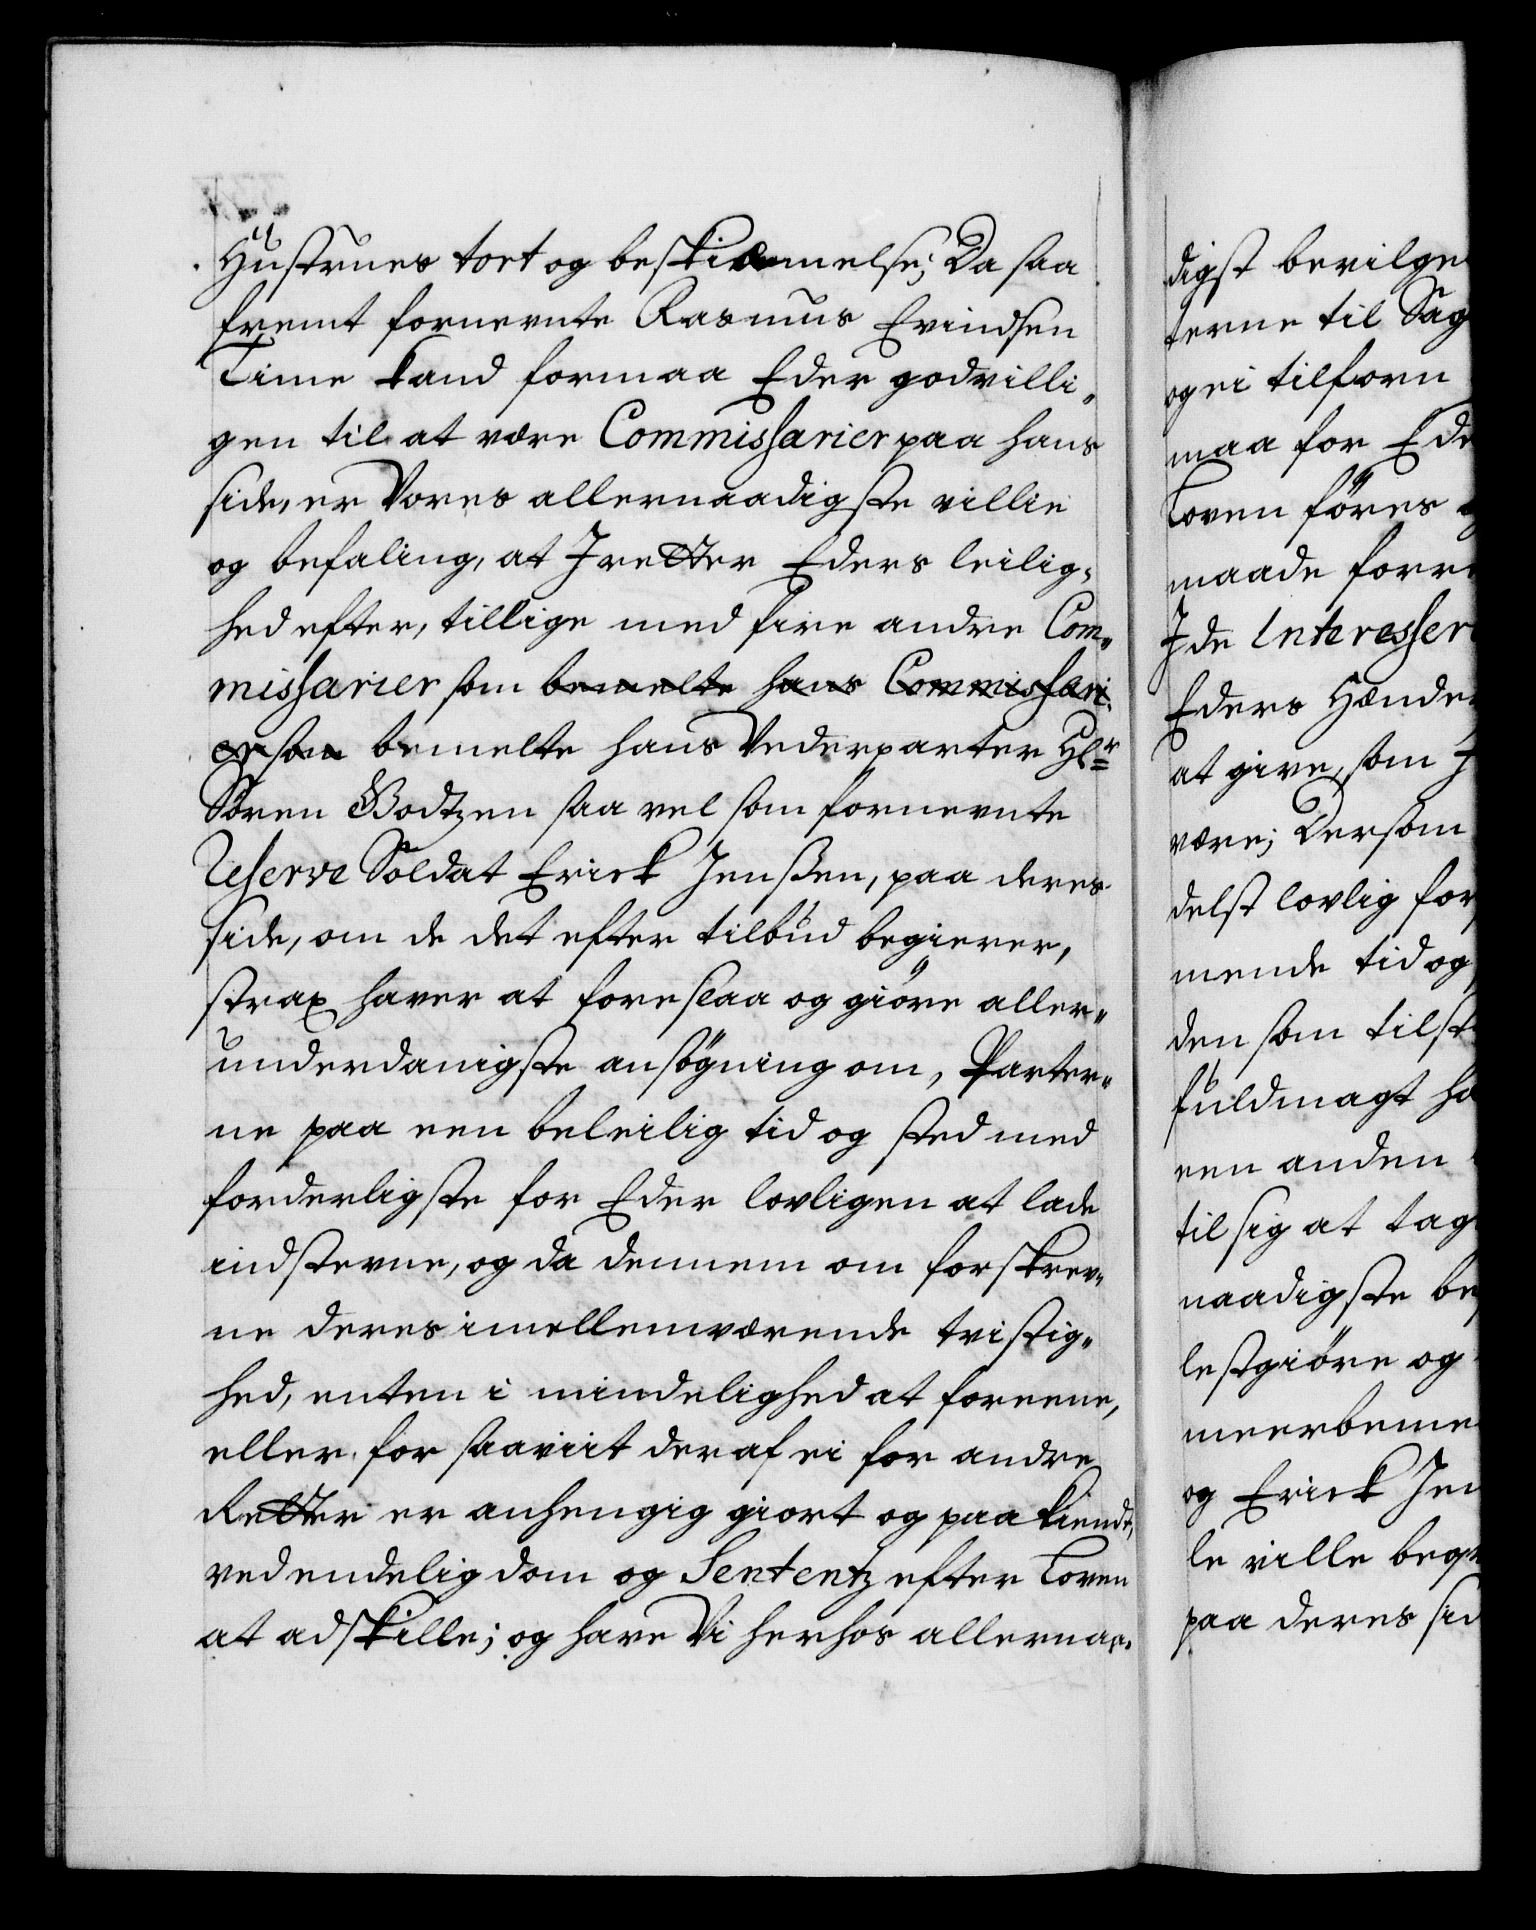 Hustrues tort og beskiæmmelse; Da saa
fremt fornevnte Rasmus Evindsen
Time kand formaa Eder godvilli„
gen til at være Commissarier paa hans
side, er Vores allernaadigste villie
og befaling, at I retter Eders leilig„
hed efter, tillige med fire andre Com„
missarier som bemelte hans Commissari„
er som bemelte hans Vederparter Hr
Sören Bodtzen saa vel som fornevnte
Reserve Soldat Erick Jenssen, paa deres
side, om de det efter tilbud begierer,
strax haver at foreslaa og giöre aller„
underdanigste ansögning om, Parter„
ne paa een beleilig tid og sted med
forderligste for Eder lovligen at lade
indstevne, og da dennem om forskrev„
ne deres imellemværende tvistig„
hed, enten i mindelighed at foreene,
eller for saaviit deraf ei for andre
Retter er anhengig giort og paakiendt,
ved endelig dom og Sententz efter Loven
at adskille; og have Vi herhos allernaa„
digst bevilge
terne til Sag
og ei tilforn
maa for Ede
Loven föres
maade forre
I de Interesser
Eders Hænde
at give, som J
være; Dersom
delst lovlig for
mende tid og
den som tilst
fuldmagt ha
een anden
til sig at tag
naadigste be
lestgiöre og
meerbeme
og Erick Jen
le ville beqv
paa deres sid